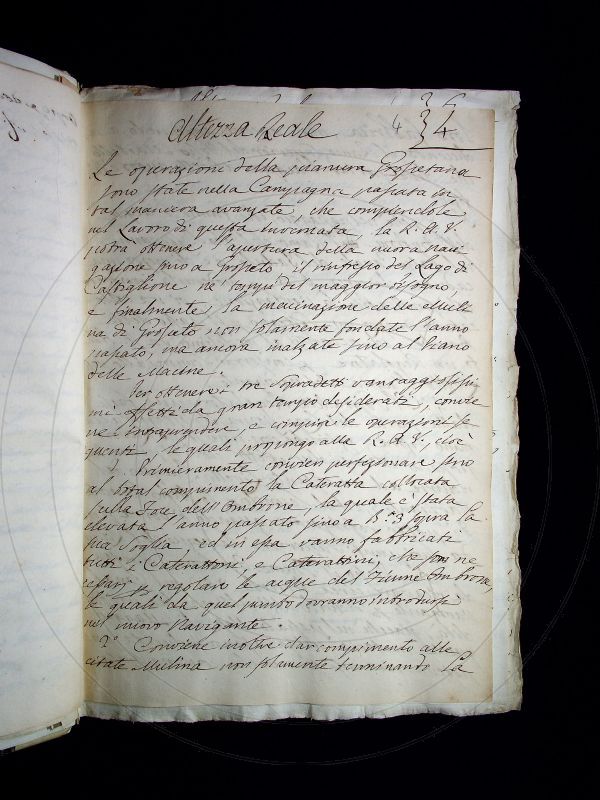 Altezza Reale
4
4
Le operazioni della pianura Grossetana
sono state nella Campagna passata in
tal maniera avanzate, che compiendole
nel Lavoro di questa invernata, la R. A. V.
potrà ottenere l'apertura della nuova navi
gazione fino a Grosseto il rinfresco del Lago di
Castiglione ne tempi del maggior bisogno,
e finalmente la macinazione delle Muli
na di Grosseto non solamente fondate l'anno
passato, ma ancora inalzate fino al Piano
delle Macine.
Per ottenere i tre sopradetti vantaggiosissi
mi effetti da gran tempo desiderati, convie
ne intraprendere, e compire le operazioni se
guenti, le quali propongo alla R. A. V., cioè
Primieramente convien perfezionare fino
al total compimento la Cateratta collocata
sulla Foce dell'Ombrone, la quale è stata
elevata l'anno passato fino a B.a 3 sopra la
sua Soglia, ed in essa vanno fabbricati
tutti i Caterattoni, e Caterattini, che son ne
cessarj p regolare le acque del Fiume Ombrone,
le quali da quel punto dovranno introdursi
nel nuovo Navigante.
2.o Conviene inoltre dar compimento alle
citate Mulina non solamente terminando la